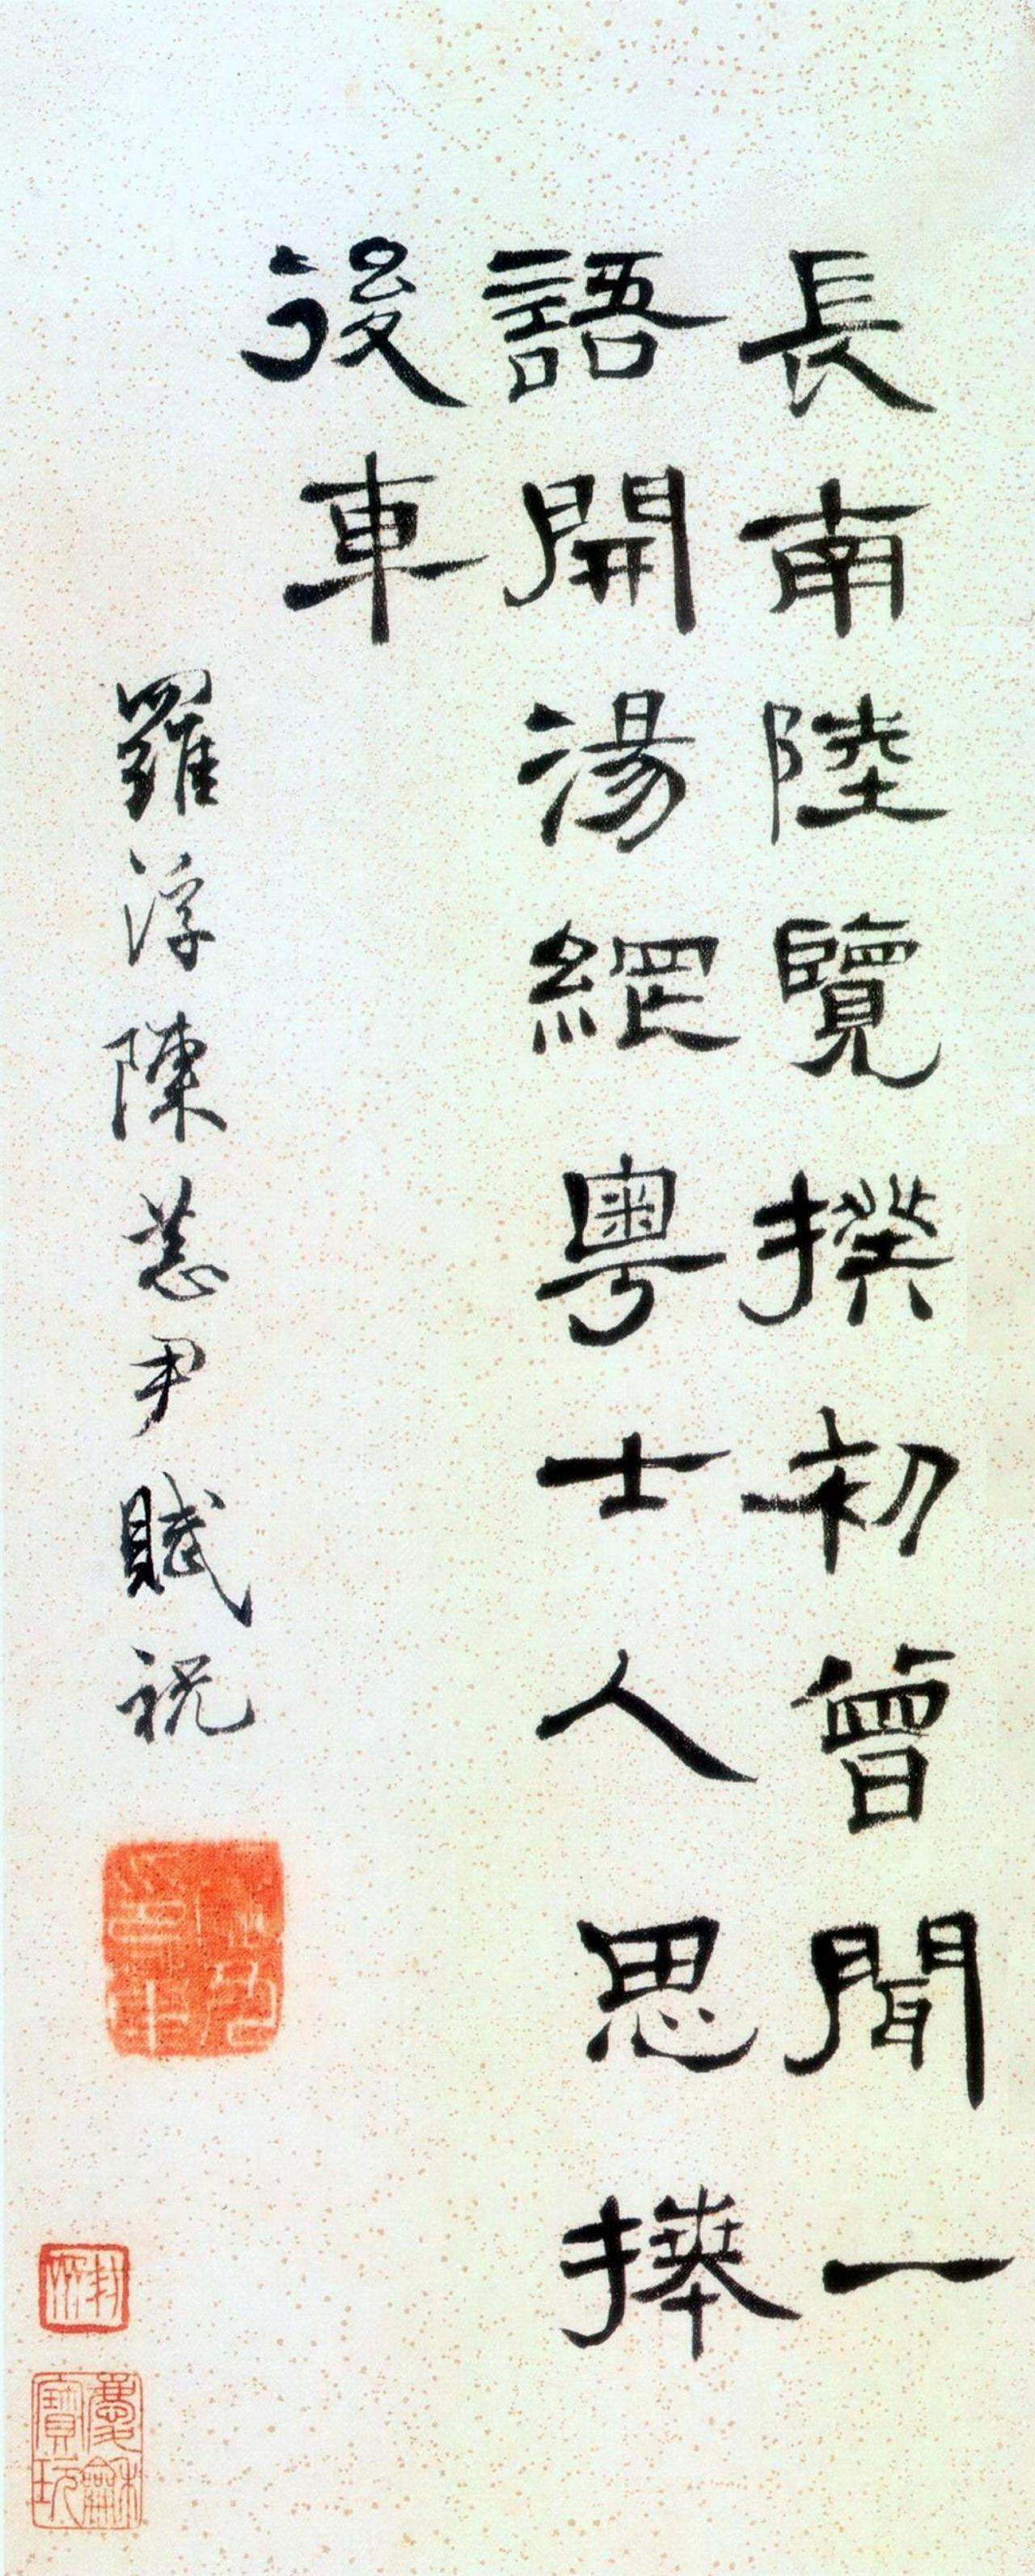 長南陸覽揆初曾聞一
語開湯網粵士人思捧
後車
羅浮陳恭尹賦祝